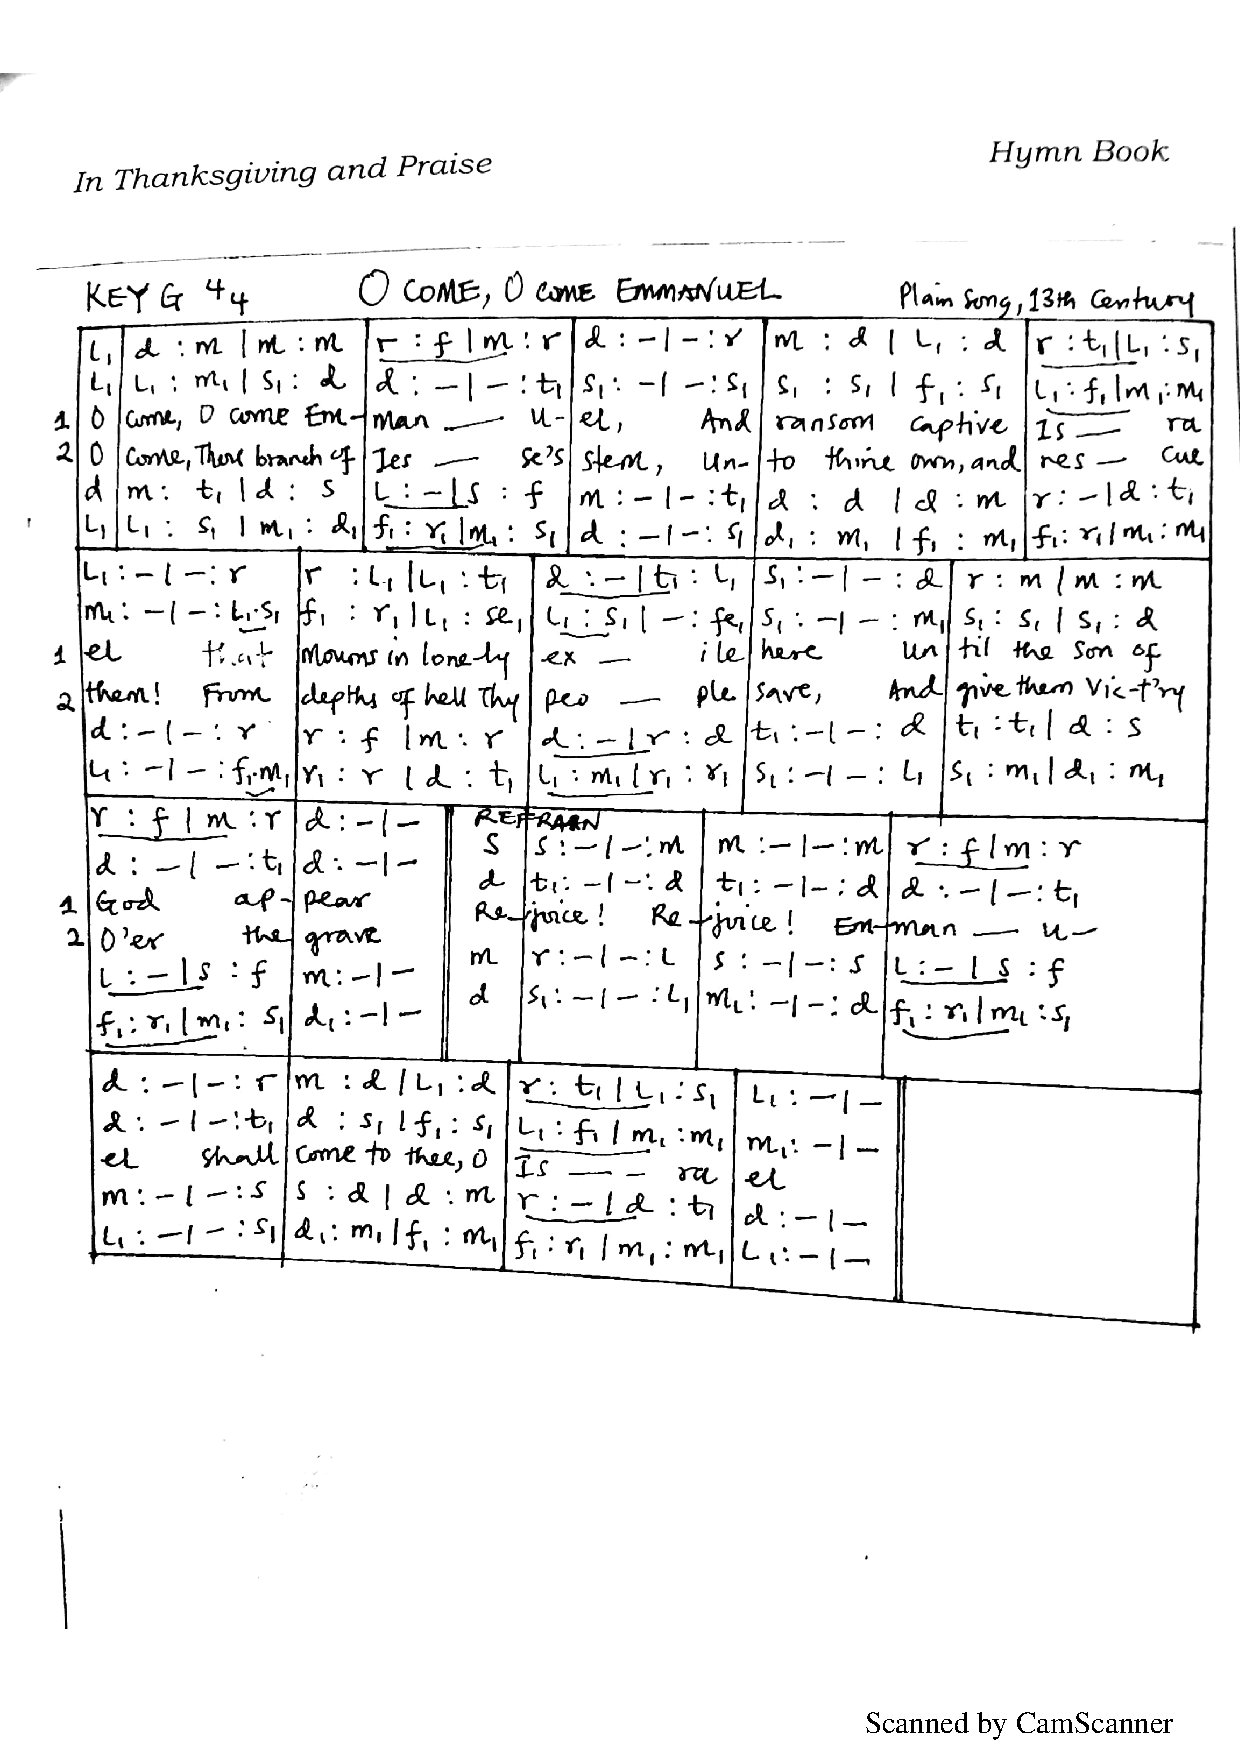 In Thanksgiving and Praise Hymn Book
KEY G 4/4 O COME, O COME EMMANUEL Plain Song, 13th Century
L₁ | d : m | m : m | r : f | m : r | d : - | - : r | m : d | L₁ : d | r : t₁ | L₁ : s₁
L₁ | L₁ : m₁ | s₁ : d | d : - | - : t₁ | s₁ : - | - : s₁ | s₁ : s₁ | f₁ : s₁ | L₁ : f₁ | m₁ : m₁
1 O come, O come Em- man — u- el, And ransom captive Is — ra
2 O come, There branch of Jes — se's stem, un- to thine own, and res — cue
d | m : t₁ | d : s | L : - | s : f | m : - | - : t₁ | d : d | d : m | r : - | d : t₁
L₁ | L₁ : s₁ | m₁ : d₁ | f₁ : r₁ | m₁ : s₁ | d : - | - : s₁ | d₁ : m₁ | f₁ : m₁ | f₁ : r₁ | m₁ : m₁
L₁ : - | - : r | r : L₁ | L₁ : t₁ | d : - | t₁ : L₁ | s₁ : - | - : d | r : m | m : m
m₁ : - | - : L₁.s₁ | f₁ : r₁ | L₁ : se₁ | L₁ : s₁ | - : fe₁ | s₁ : - | - : m₁ | s₁ : s₁ | s₁ : d
1 el that mourns in lone-ly ex — ile here un til the Son of
2 them! From depths of hell Thy peo — ple save, And give them Vic-t'ry
d : - | - : r | r : f | m : r | d : - | r : d | t₁ : - | - : d | t₁ : t₁ | d : s
L₁ : - | - : f₁.m₁ | r₁ : r | d : t₁ | L₁ : m₁ | r₁ : r₁ | s₁ : - | - : L₁ | s₁ : m₁ | d₁ : m₁
REFRARN
r : f | m : r | d : - | - || s | s : - | - : m | m : - | - : m | r : f | m : r
d : - | - : t₁ | d : - | - || d | t₁ : - | - : d | t₁ : - | - : d | d : - | - : t₁
1 God ap- pear Re- joice! Re- joice! Em- man — u-
2 O'er the grave
L : - | s : f | m : - | - || m | r : - | - : L | s : - | - : s | L : - | s : f
f₁ : r₁ | m₁ : s₁ | d₁ : - | - || d | s₁ : - | - : L₁ | m₁ : - | - : d | f₁ : r₁ | m₁ : s₁
d : - | - : r | m : d | L₁ : d | r : t₁ | L₁ : s₁ | L₁ : - | -
d : - | - : t₁ | d : s₁ | f₁ : s₁ | L₁ : f₁ | m₁ : m₁ | m₁ : - | -
el shall come to thee, O Is — - ra el
m : - | - : s | s : d | d : m | r : - | d : t₁ | d : - | -
L₁ : - | - : s₁ | d₁ : m₁ | f₁ : m₁ | f₁ : r₁ | m₁ : m₁ | L₁ : - | -
Scanned by CamScanner